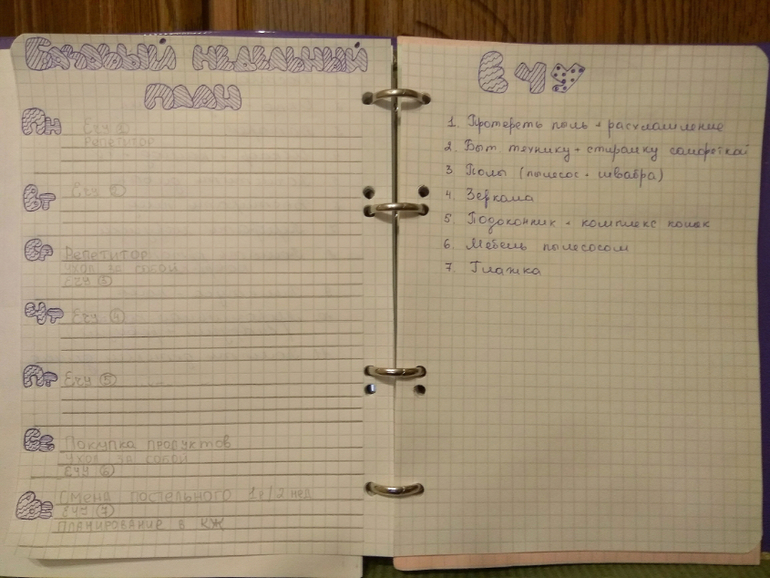 Базовый недельный
план
Пн
ЕЧУ ①
Репетитор
Вт
ЕЧУ ②
Ср
Репетитор
Уход за собой
ЕЧУ ③
Чт
ЕЧУ ④
Пт
ЕЧУ ⑤
Сб
Покупка продуктов
Уход за собой
ЕЧУ ⑥
Вс
Смена постельного 1р/2 нед
ЕЧУ (7)
Планирование в КЖ
ЕЧУ
1. Протереть пыль + расхламление
2. Быт технику + стиралку
3 Полы (пылесос + швабра)
4. Зеркала
5 Подоконник + комплекс кошек
6 Мебель пылесосом
7. Глажка